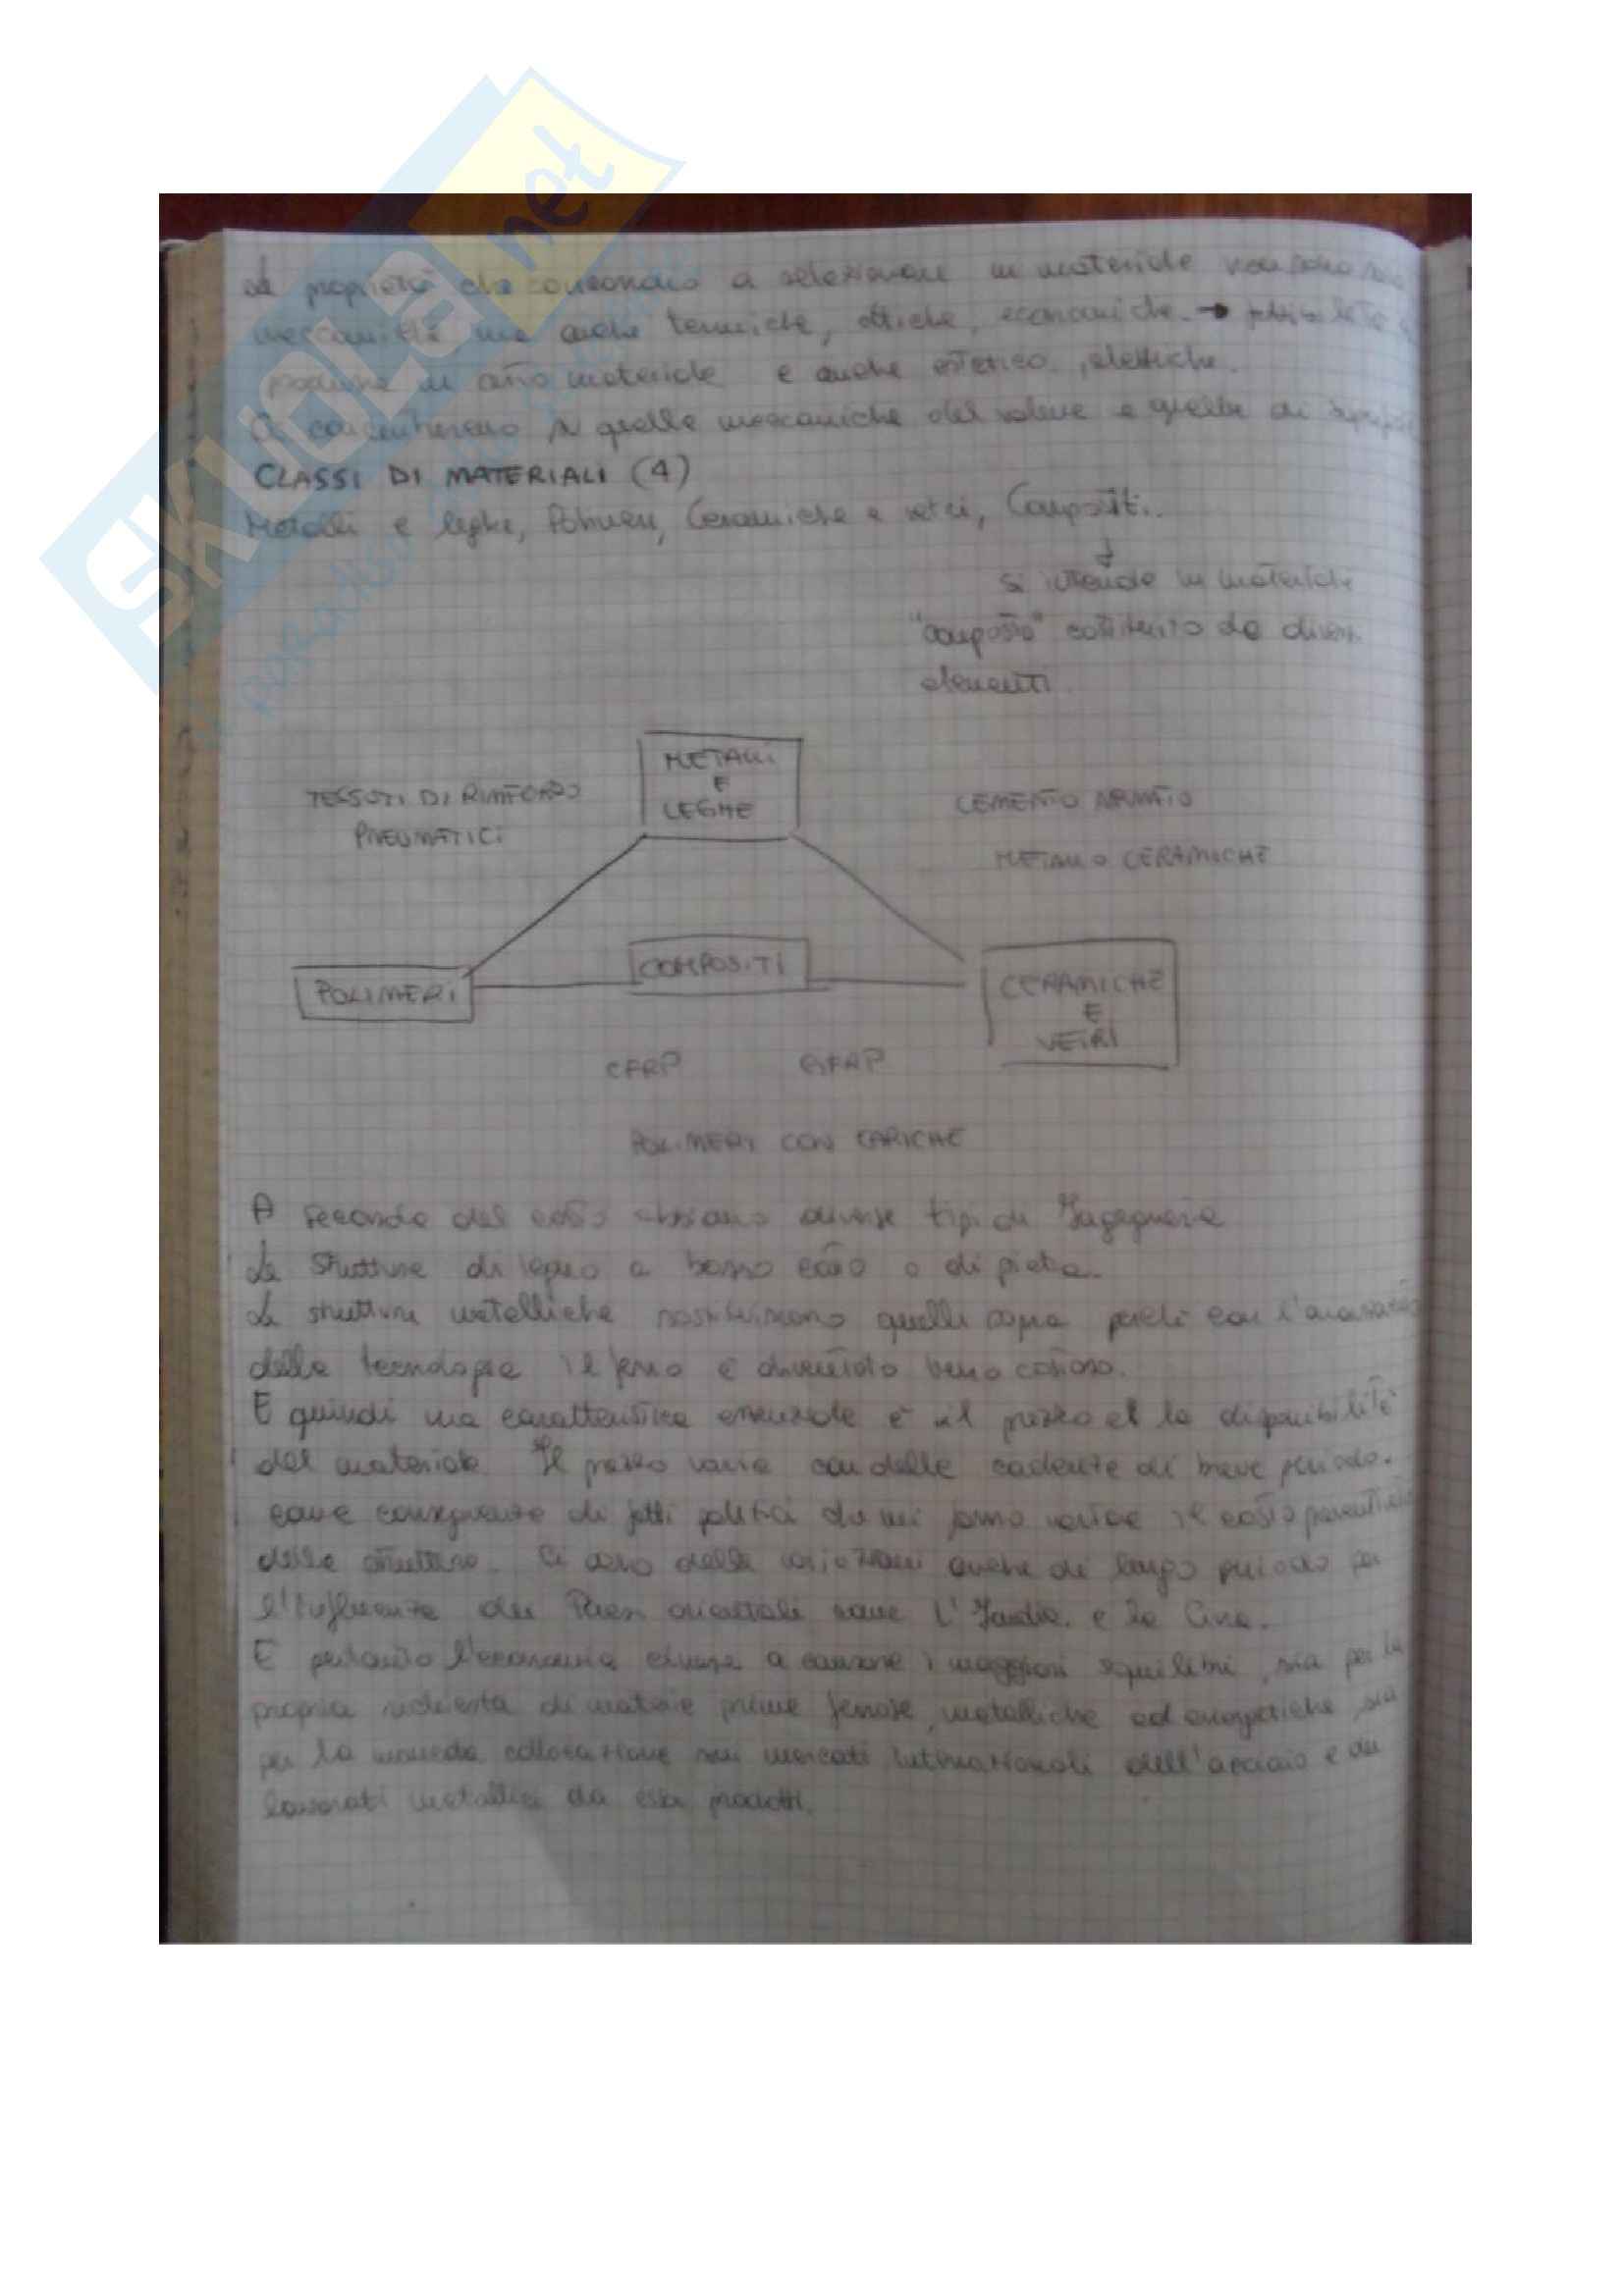 SKUOLA.net
Le proprietà che concorrono a selezionare un materiale non sono solo
meccaniche ma anche termiche, ottiche, economiche. →
produrre un certo materiale e anche estetico, elettriche.
Ci concentreremo su quelle meccaniche del volume e quelle di
CLASSI DI MATERIALI (4)
Metalli e leghe, Polimeri, Ceramiche e vetri, Compositi.
↓
si intende un materiale
"composto" costituito da diversi
elementi
METALLI
E
LEGHE
TESSUTI DI RINFORZO
PNEUMATICI
CEMENTO ARMATO
METALLO CERAMICHE
COMPOSITI
POLIMERI
CERAMICHE
E
VETRI
CFRP GFRP
POLIMERI CON CARICHE
A seconda del costo abbiamo diverse tipi di Ingegneria
Le strutture di legno a basso costo o di pietra.
Le strutture metalliche sostituiscono quelle sopra perché con l'avanzare
della tecnologia il ferro è diventato meno costoso.
E quindi una caratteristica essenziale è il prezzo et la disponibilità
del materiale. Il prezzo varia con delle cadenze di breve periodo.
come conseguenze di fatti politici da cui fanno variare il costo
della struttura. Ci sono delle variazioni anche di lungo periodo per
l'influenza dei Paesi orientali come l'India e la Cina.
E pertanto l'economia cinese a causare i maggiori squilibri, sia per la
propria richiesta di materie prime ferrose, metalliche ed energetiche, sia
per la collocazione sui mercati internazionali dell'acciaio e dei
lavorati metallici da essa prodotti.